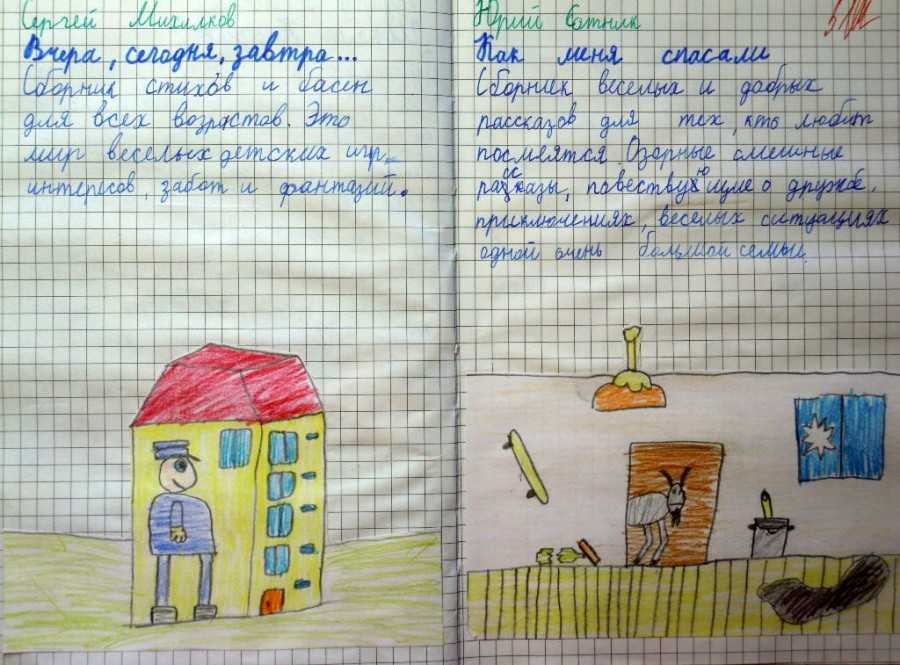 Сергей Михалков
Вчера, сегодня, завтра...
Сборник стихов и басен
для всех возрастов. Это
мир веселых детских игр,
интересов, забот и фантазий.
Юрий Сотник
Как меня спасали
Сборник веселых и добрых
рассказов для тех, кто любит
посмеятся. Озорные смешные
рассказы, повествующие о дружбе,
приключениях, веселых ситуациях
одной очень большой семьи.